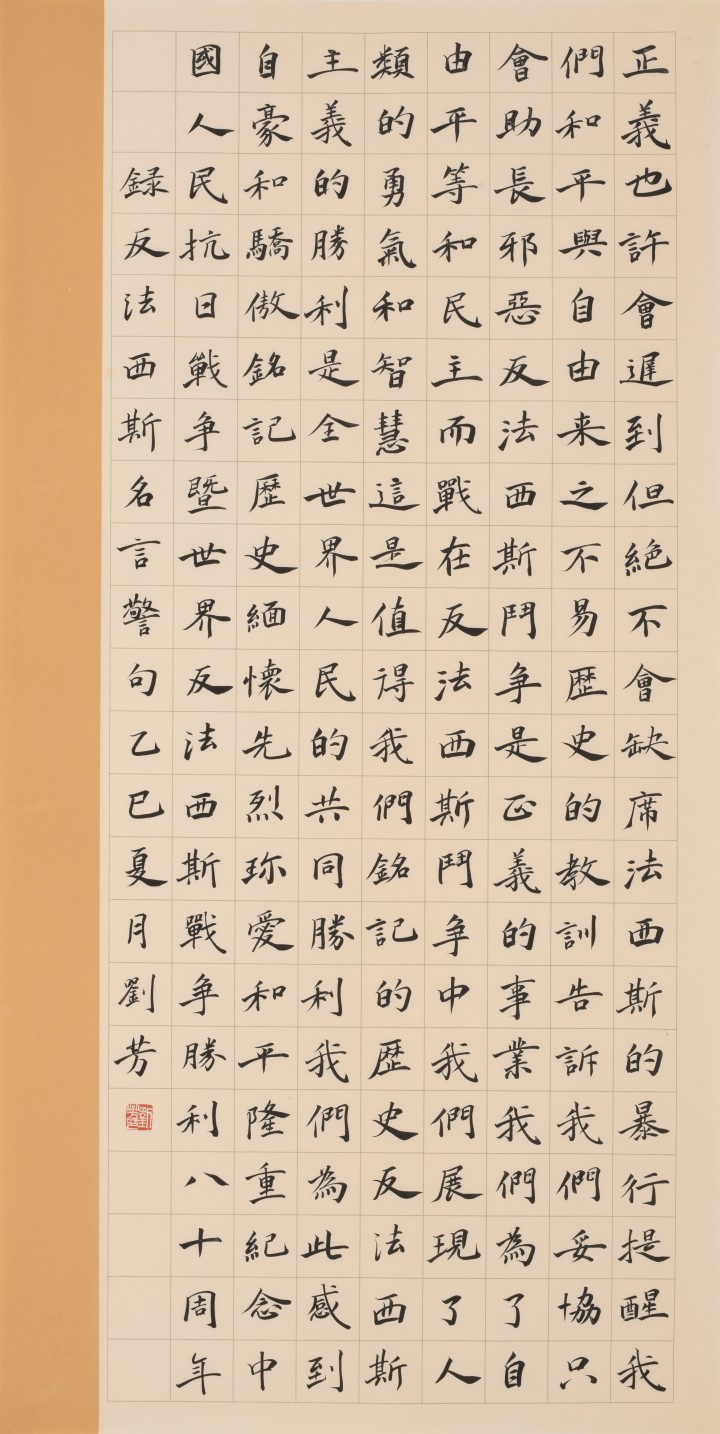 正義也許會遲到但絕不會缺席法西斯的暴行提醒我
們和平與自由来之不易歷史的教訓告訴我們妥協只
會助長邪惡反法西斯鬥争是正義的事業我們為了自
由平等和民主而戰在反法西斯鬥争中我們展現了人
類的勇氣和智慧這是值得我們銘記的歷史反法西斯
主義的勝利是全世界人民的共同勝利我們為此感到
自豪和驕傲銘記歷史緬懷先烈珍愛和平隆重紀念中
國人民抗日戰争暨世界反法西斯戰争勝利八十周年
録反法西斯名言警句乙巳夏月劉芳